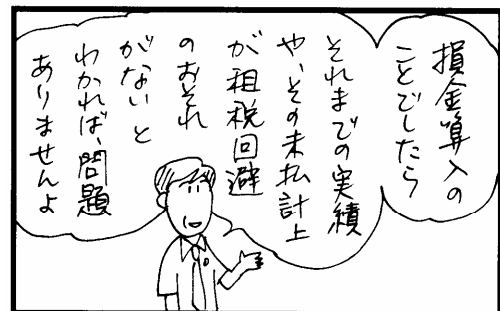 損金算入の
ことでしたら
それまでの実績
や、その未払計上
が租税回避
のおそれ
がないと
わかれば、問題
ありませんよ